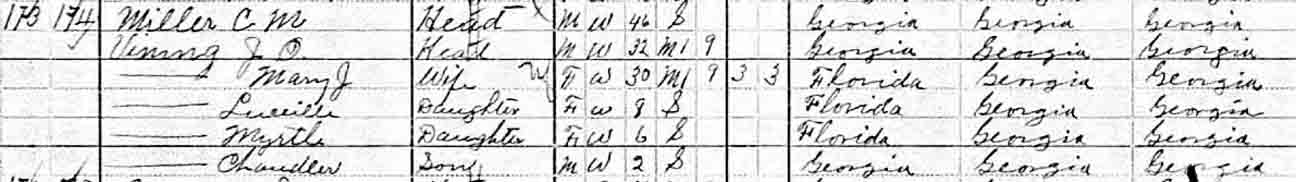 173 174 Miller C M Head M W 46 S Georgia Georgia Georgia
Vining J O. Head M W 32 M1 9 Georgia Georgia Georgia
—— Mary J Wife F W 30 M1 9 3 3 Florida Georgia Georgia
—— Lucille Daughter F W 8 S Florida Georgia Georgia
—— Myrtle Daughter F W 6 S Florida Georgia Georgia
—— Chandler Son M W 2 S Georgia Georgia Georgia